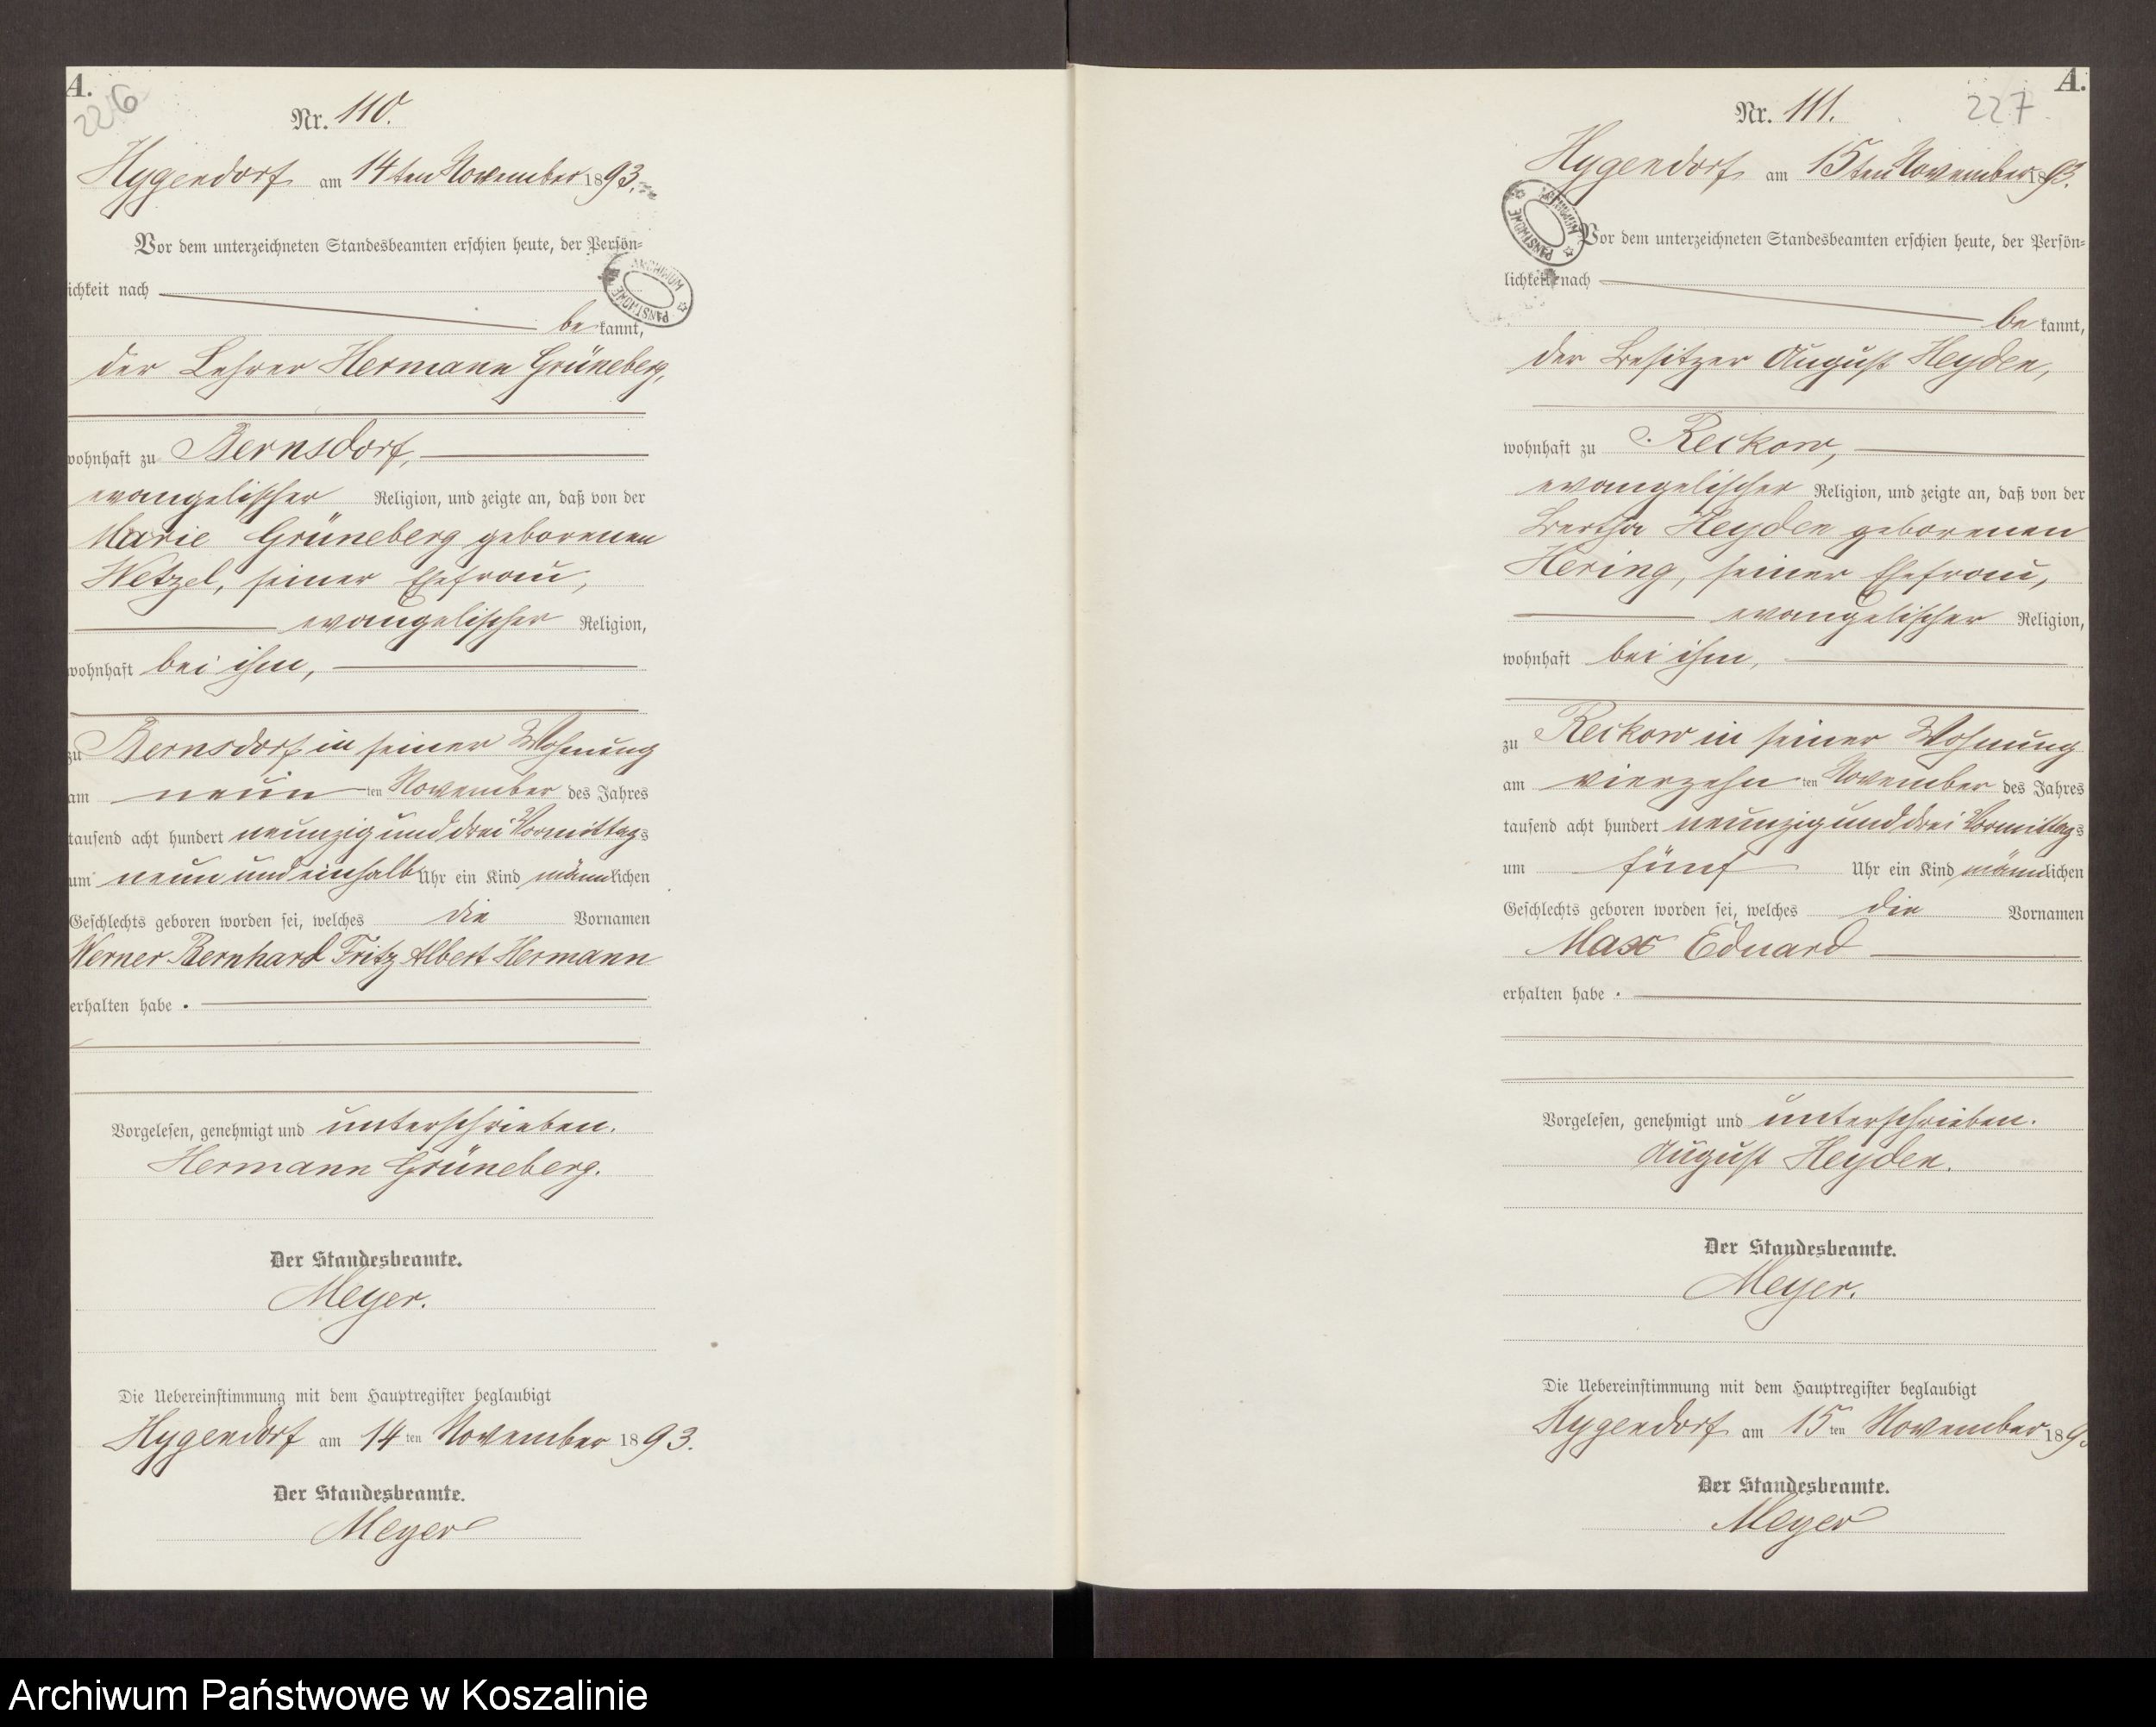 A.
226
Nr. 110.
Hygendorf am 14ten November 1893.
Vor dem unterzeichneten Standesbeamten erschien heute, der Persön=
lichkeit nach
be kannt,
der Lehrer Hermann Grüneberg,
wohnhaft zu Bernsdorf,
evangelischer Religion, und zeigte an, daß von der
Marie Grüneberg geborenen
Wetzel, seiner Ehefrau,
evangelischer Religion,
wohnhaft bei ihm,
zu Bernsdorf in seiner Wohnung
am neun ten November des Jahres
tausend acht hundert neunzig und drei Vormittags
um neun und einhalb Uhr ein Kind männlichen
Geschlechts geboren worden sei, welches die Vornamen
Werner Bernhard Fritz Albert Hermann
erhalten habe.
Vorgelesen, genehmigt und unterschrieben.
Hermann Grüneberg.
Der Standesbeamte.
Meyer.
Die Uebereinstimmung mit dem Hauptregister beglaubigt
Hygendorf am 14 ten November 1893.
Der Standesbeamte.
Meyer
A.
227
Nr. 111.
Hygendorf am 15ten November 1893.
ARCHIWUM PAŃSTWOWE
Vor dem unterzeichneten Standesbeamten erschien heute, der Persön=
lichkeit nach
be kannt,
der Besitzer August Heyden,
wohnhaft zu Reckow,
evangelischer Religion, und zeigte an, daß von der
Bertha Heyden geborenen
Hering, seiner Ehefrau,
evangelischer Religion,
wohnhaft bei ihm,
zu Reckow in seiner Wohnung
am vierzehn ten November des Jahres
tausend acht hundert neunzig und drei Vormittags
um fünf Uhr ein Kind männlichen
Geschlechts geboren worden sei, welches die Vornamen
Max Eduard
erhalten habe.
Vorgelesen, genehmigt und unterschrieben.
August Heyden.
Der Standesbeamte.
Meyer.
Die Uebereinstimmung mit dem Hauptregister beglaubigt
Hygendorf am 15 ten November 189
Der Standesbeamte.
Meyer
Archiwum Państwowe w Koszalinie